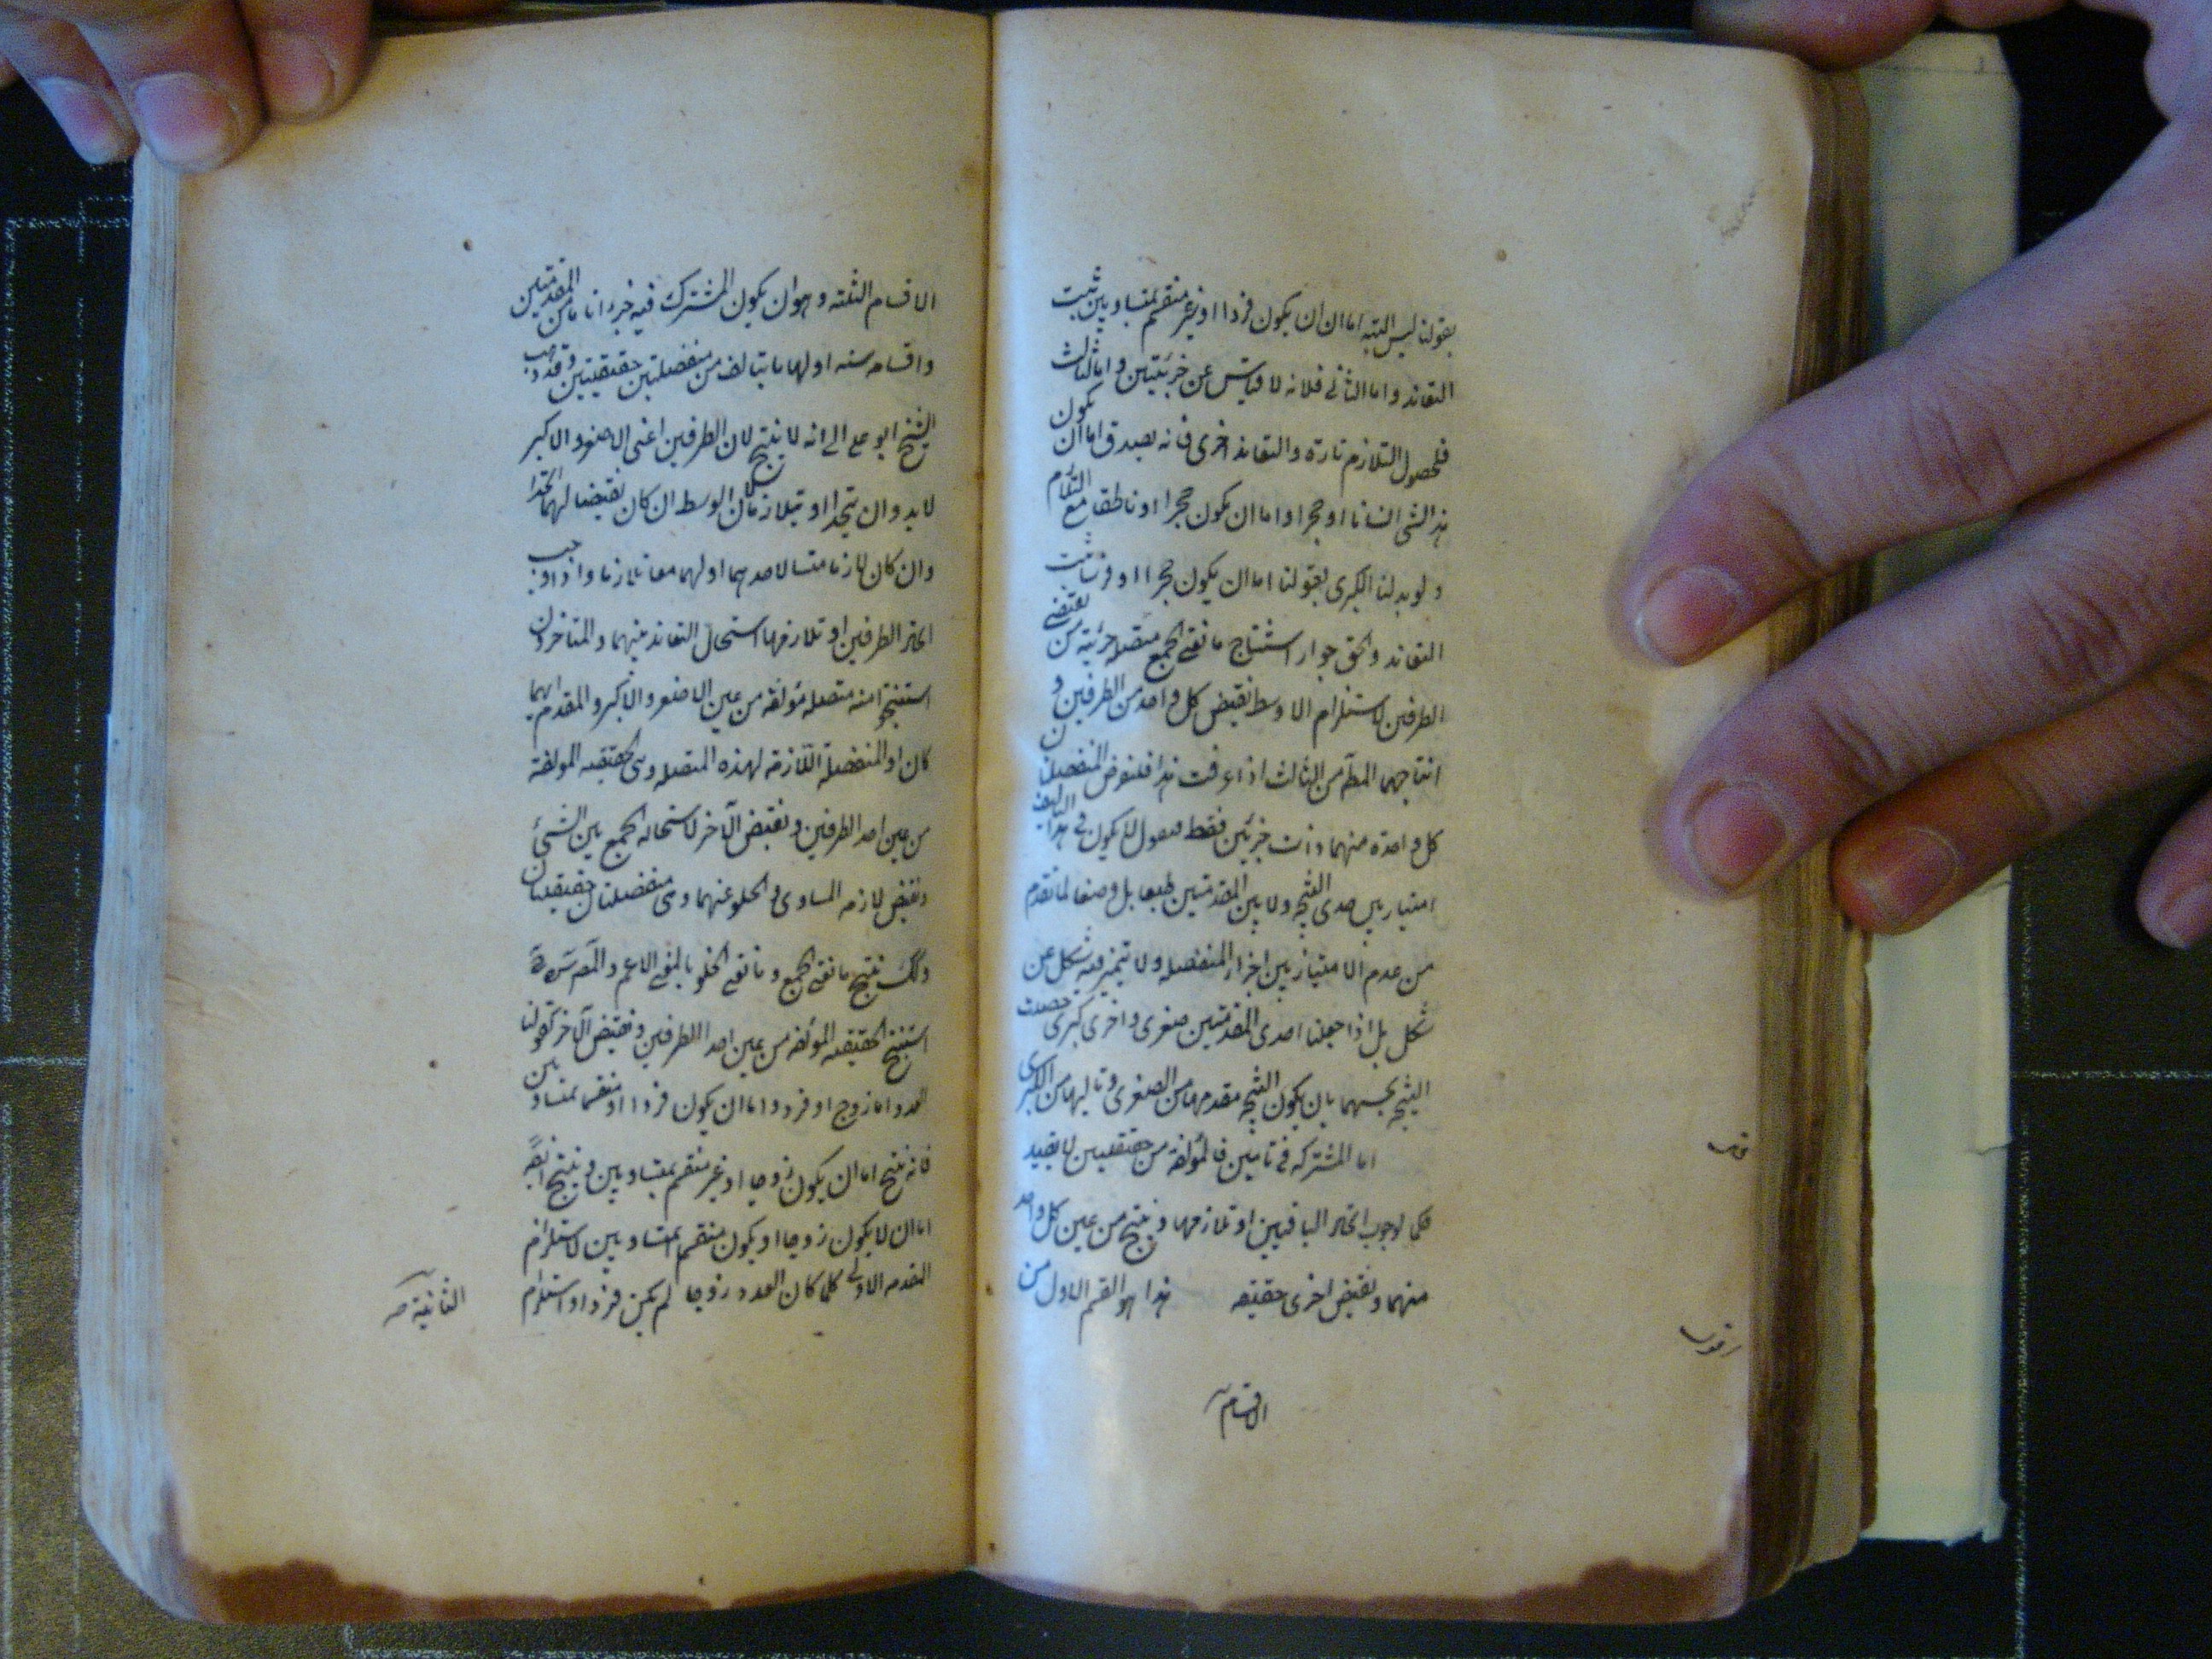 بقولنا ليس البتة اما ان يكون فردا او غير منقسم بمتساويين ثبت
التعاند واما الثاني فلانه لا قياس عن جزئيتين واما الثالث
فلحصول التلازم تارة والتعاند اخرى فانه يصدق اما ان يكون
هذا الشى انسانا او حجرا واما ان يكون حجرا او ناطقا مع التلازم
ولو بدلنا الكبرى بقولنا اما ان يكون حجرا او فرسا ثبت
التعاند والحق جواز استنتاج مانعتي الجمع متصلة جزئية من نقيضي
الطرفين لاستلزام الاوسط نقيض كل واحد من الطرفين و
انتاجهما المط من الثالث اذا عرفت هذا فلنفرض المنفصلتان
كل واحدة منهما ذات جزئين فقط فنقول لا يكون في هذا التاليف
امتياز بين حدى النتيجة ولا بين المقدمتين طبعا بل وضعا لما تقدم
من عدم الامتياز بين اجزاء المنفصلة ولا يتميز فيه شكل عن
شكل بل اذا جعلنا احدى المقدمتين صغرى واخرى كبرى حصلت
النتيجة بحسبهما بان يكون النتيجة مقدمها من الصغرى وتاليها من الكبرى
اما المشتركة في تامين فالمؤلفة من حقيقيتين لا يفيد
حكما لوجوب اتحاد الباقيين او تلازمهما وينتج من عين كل واحد
منهما ونقيض اخرى حقيقة هذا هو القسم الاول من
الاقسام
الاقسام الثلثة وهو ان يكون المشترك فيه جزءا تاما من المقدمتين
واقسامه ستة اولها ما يتالف من منفصلتين حقيقيتين وقد ذهب
الشيخ ابو على الى انه لا ينتج لان الطرفين اعنى الاصغر والاكبر
لا بد وان يتحدا او يتلازما لان الوسط ان كان نقيضا لهما اتحدا
وان كان لازما مساويا لاحدهما او لهما معا تلازما واذا وجب
اتحاد الطرفين او تلازمهما استحال التعاند بينهما والمتاخرون
استنتجوا منه متصلة مؤلفة من عين الاصغر والاكبر والمقدم ايهما
كان او المنفصلة اللازمة لهذه المتصلة وهى الحقيقية المولفة
من عين احد الطرفين ونقيض الآخر لاستحالة الجمع بين الشئ
ونقيض لازمه المساوى والخلو عنهما وهى منفصلتان حقيقيتان
وكذلك ينتج مانعتي الجمع ومانعتي الخلو بالمعنى الاعم والمص
استنتج الحقيقية المؤلفة من عين احد الطرفين ونقيض الآخر كقولنا
العدد اما زوج او فرد واما ان يكون فردا او منقسما بمتساويين
فانه ينتج اما ان يكون زوجا او غير منقسم بمتساويين وينتج ايضا
اما ان لا يكون زوجا او يكون منقسم بمتساويين لاستلزام
المقدمة الاولى كلما كان العدد زوجا لم يكن فردا واستلزام
الثانية